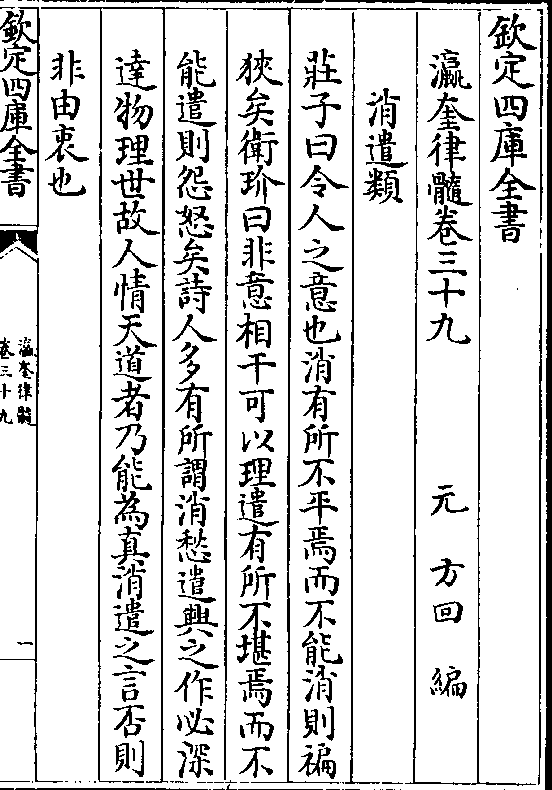 欽定四庫全書
瀛奎律髓卷三十九　元　方回　編
消遣類
莊子曰令人之意也消有所不平焉而不能消則褊
狹矣衛玠曰非意相干可以理遣有所不堪焉而不
能遣則怨怒矣詩人多有所謂消愁遣興之作必深
達物理世故人情天道者乃能為真消遣之言否則
非由衷也
欽定四庫全書
瀛奎律髓
卷三十九
一